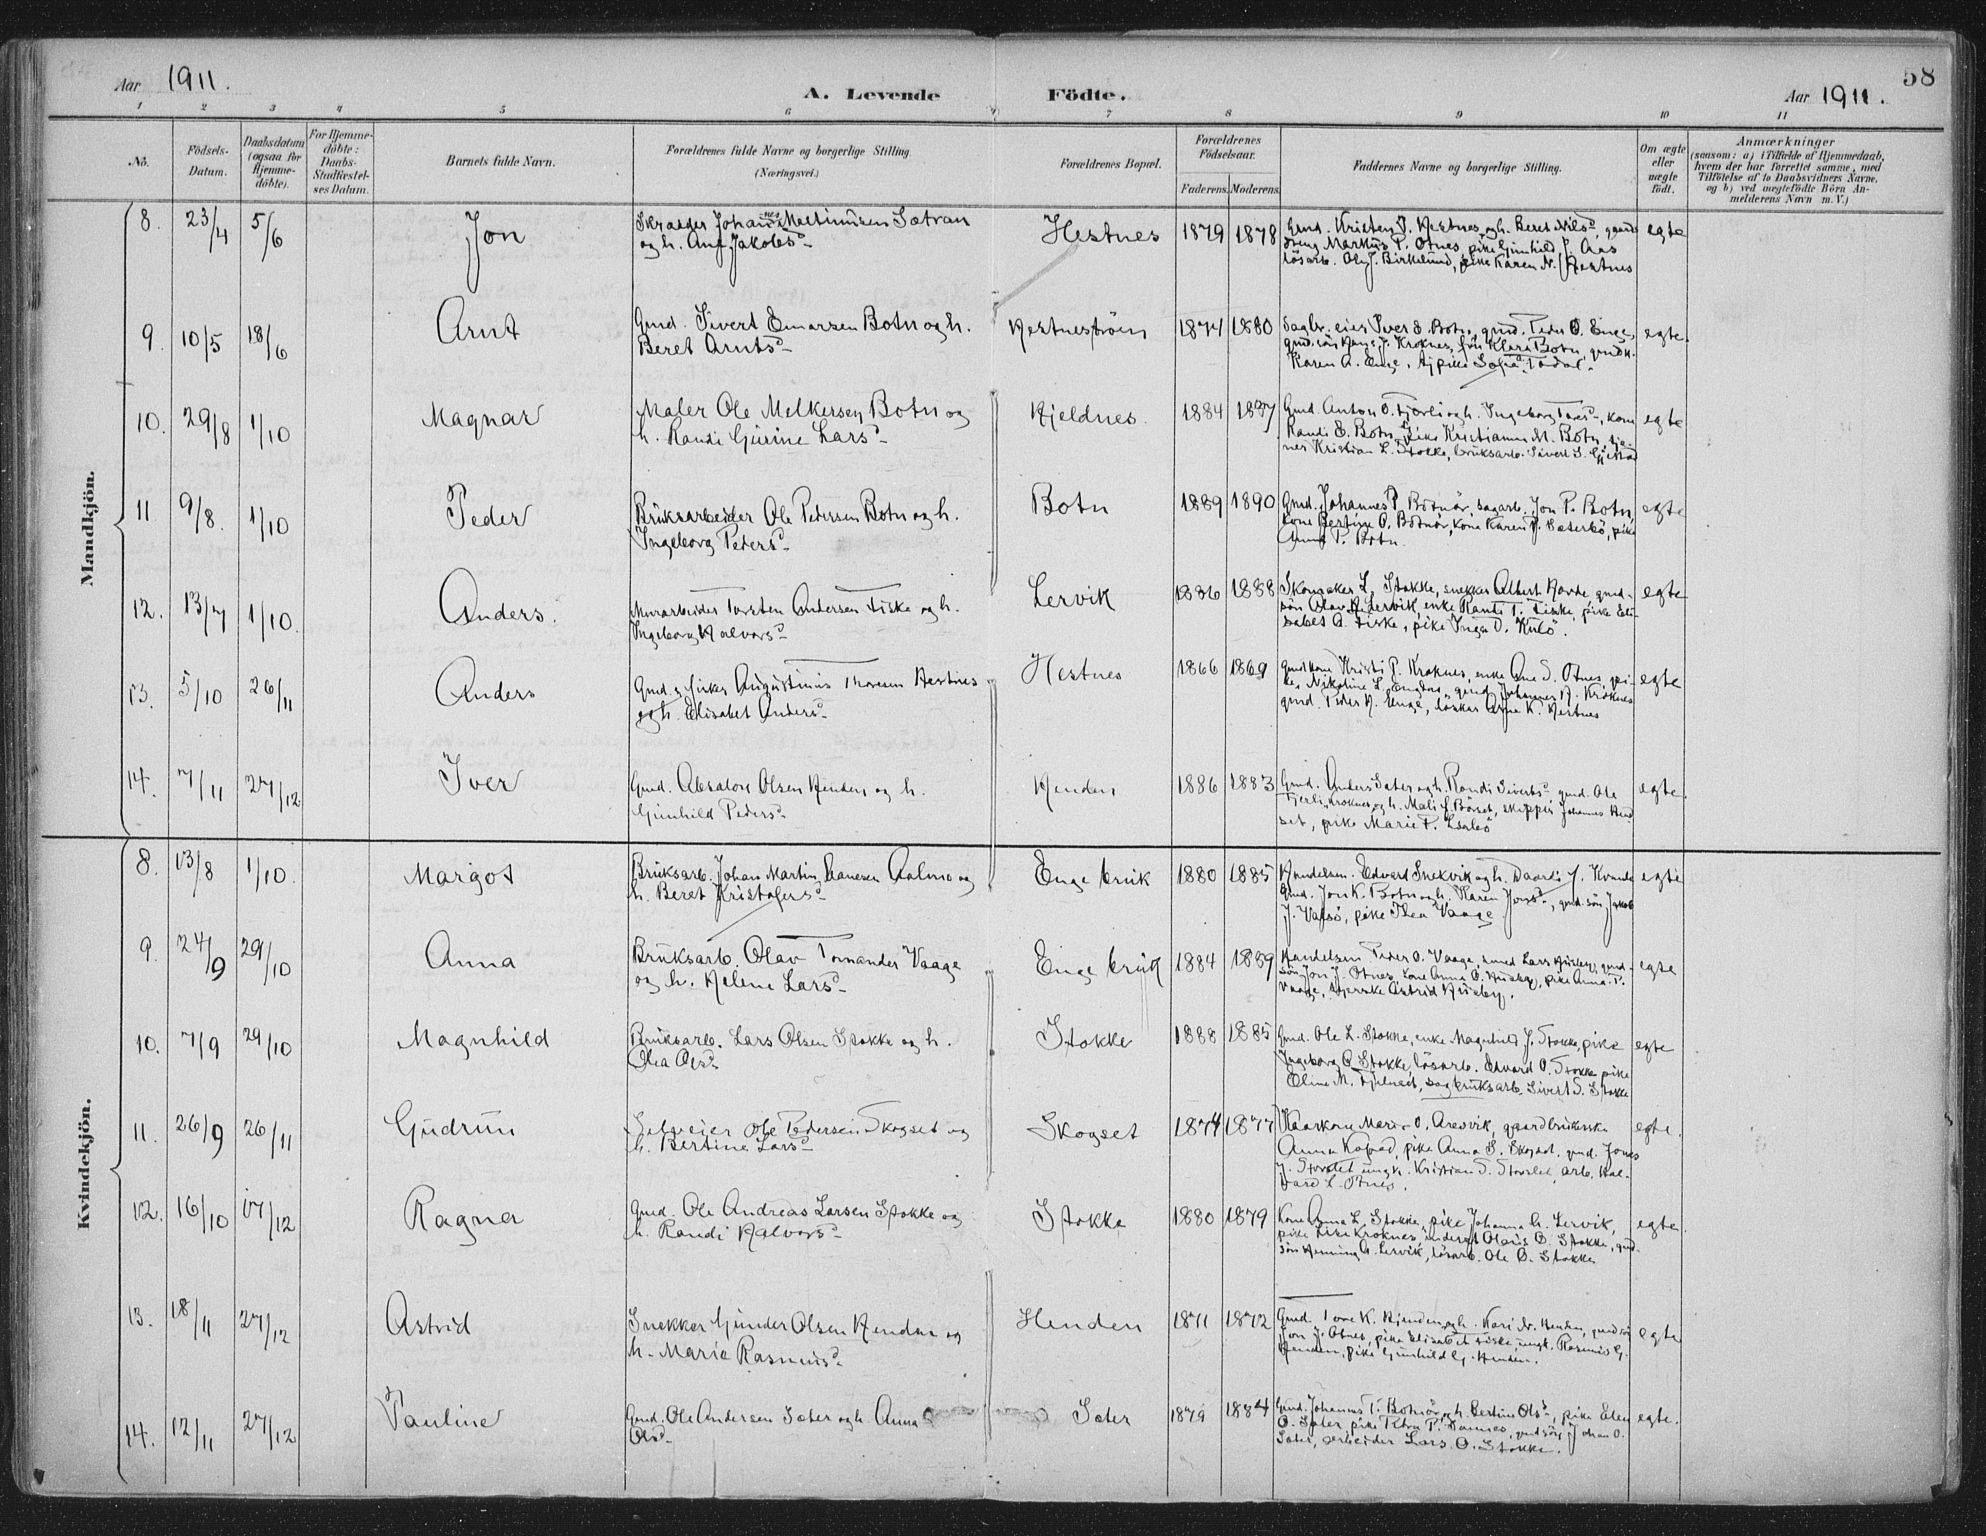 58
Aar 1911.
A. Levende Födte.
Aar 1911.
1 2 3 4 5 6 7 8 9 10 11
No.
Födsels-Datum.
Daabsdatum (ogsaa for Hjemme-döbte).
For Hjemme-döbte: Daabs-Stadfæstel-ses Datum.
Barnets fulde Navn.
Forældrenes fulde Navne og borgerlige Stilling. (Næringsvei.)
Forældrenes Bopæl.
Forældrenes Födselsaar.
Faderens. Moderens.
Faddernes Navne og borgerlige Stilling.
Om ægte eller uægte födt.
Anmærkninger
(saasom: a) i Tilfælde af Hjemmedaab,
hvem der har forrettet samme, med
Tilföielse af to Daabsvidners Navne,
og b) ved uægtefödte Börn An-
melderens Navn m. V.)
Mandkjön.
8. 23/4 5/6 Jon
Skrædder Johan Meltinussen Sætran
og h. Ane Jakobsd.
Hestnes 1879 1878
Gmd. Kristen J. Hestnes og h. Beret Nilsd.,
dreng Markus P. Otnes, pike Gunhild J. Aas
lösarb. Ole J. Birkelund, pike Karen N. Hestnes
egte
9. 10/5 18/6 Arnt
Gmd. Sivert Einarsen Botn og h.
Beret Arntsd.
Hestneströen 1874 1880
Sagbr. eier Iver E. Botn, gmd. Peder O. Enge,
gmd. sön Hans J. Kroknes, frk. Klara Botn, gmdk.
Karen A. Enge, tj. pike Sofie Todal.
egte.
10. 29/8 1/10 Magnar
Maler Ole Melkersen Botn og
h. Randi Gurine Larsd.
Kjeldnes 1884 1887
Gmd. Anton O. Fjærli og h. Ingeborg Toresd., kone
Randi E. Botn, pike Kristianne M. Botn, tje-
ner Kristian L. Stokke, bruksarb. Sivert S.
egte
11. 9/8. 1/10 Peder
Bruksarbeider Ole Pedersen Botn og h.
Ingeborg Pedersd.
Botn 1889 1890
Gmd. Johannes P. Botnör, sagarb. Jon P. Botn,
kone Bertine O. Botnör, kone Karen P. Sæterbö, pike
Anna P. Botn.
egte
12. 13/7 1/10. Anders.
Murarbeider Torsten Andersen Fiske og h.
Ingeborg Halvorsd.
Lervik 1886 1888
Skomaker L. Stokke, snekker Albert Hovde, gmd-
sön Olav H. Lervik, enke Randi T. Fiske, pike Eli-
sabet A. Fiske, pike Inga O. Kulö.
egte
13. 5/10 26/11 Anders
Gmd. & fisker Augustinus Thoresen Hestnes
og h. Elisabet Andersd.
Hestnes 1866 1869
Gmdkone Kristi P. Kroknes, enke Ane S. Otnes, pi-
ke Nikoline L. Engdal, gmd. Johannes H. Kroknes
gmd. Peder H. Enge, löskar Arne K. Hestnes
egte
14. 7/11 27/12 Iver
Gmd. Absalon Olsen Henden og h.
Gunhild Pedersd.
Henden 1886 1883
Gmd. Anders Sater og h. Randi Sivertsd., gmd. Ole
Fjerli, Kroknes og h. Mali J. Börset, skipper Johannes Hend
set, pike Marie P.
egte.
Kvindekjön.
8. 13/8 1/10. Margot
Bruksarb. Johan Martin Hansen Aalmo og
h. Beret Kristofersd.
Enge bruk 1880 1885
Handelsm. Edvard Snekvik og h. J. Kvande
Gmd. Jon K. Botn og h. Karen Jonsd., gmd. sön Jakob
J. Valsö, pike Thea Vaage
egte
9. 24/9 29/10 Anna
Bruksarb. Olav Tomander Vaage
og h. Helene Larsd.
Enge bruk 1884 1889
Handelsm. Peder O. Vaage, smed Lars Huseby, gmd-
sön Jon J. Otnes, kone Anna O. Huseby, pike Anna P.
Vaage, syerske Astrid Huseby.
egte
10. 7/9 29/10 Magnhild
Bruksarb. Lars Olsen Stokke og h.
Olea Olsd.
Stokke 1888 1885
Gmd. Ole L. Stokke, enke Magnhild J. Stokke, pike
Ingeborg O. Stokke, lösarb. Edvard O. Stokke, pike
Eline M. Fjelnset, sagbruksarb. Sivert S. Stokke
egte
11. 26/9 26/11 Gudrun
Selveier Ole Pedersen Skogset og
h. Bertine Larsd.
Skogset 1874 1877
Kaarkone Marit O. Aresvik, gaardbrukerske
Anna pike Anna S. Skogset, gmd. Jonas
J. Storslet, ungk. Kristian T. Storslet, arb. Hal-
vard L. Otnes.
egte.
12. 16/10 17/12 Ragna
Gmd. Ole Andreas Larsen Stokke og
h. Randi Halvorsd.
Stokke 1880 1879
Kone Anna L. Stokke, pike Johanna H. Lervik,
pike Lise Kroknes, Olaus O. Stokke, gmd-
sön Henning H. Lervik, lösarb. Ole O. Stokke
egte.
13. 18/11 27/12 Astrid
Snekker Gunder Olsen Henden og
h. Marie Rasmusd.
Henden 1871 1872
Gmd. Tore K. Henden og h. Kari N. Henden, gmdsön
Jon J. Otnes, pike Elisabet Fiske, ungk. Rasmus G.
Henden, pike Gunhild G. Henden.
egte
14. 12/11 27/12 Pauline
Gmd. Ole Andersen Sater og h. Anna
Olsd.
Sater 1879 1884
Gmd. Johannes P. Botnör og h. Bertine Olsd., pike Elen
O. Sater, pike Petra P. gmdsön Johan O.
Sater, arbeider Lars O. Stokke.
egte.